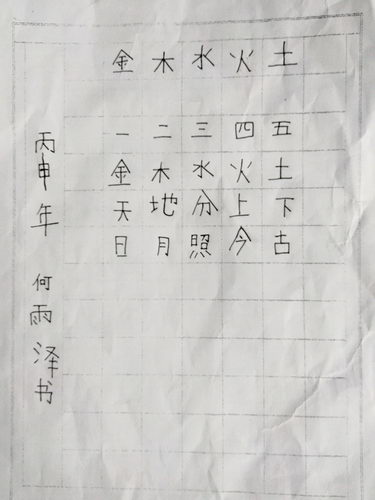 金木水火土
一二三四五
金木水火土
天地分上下
日月照今古
丙申年 何雨泽书